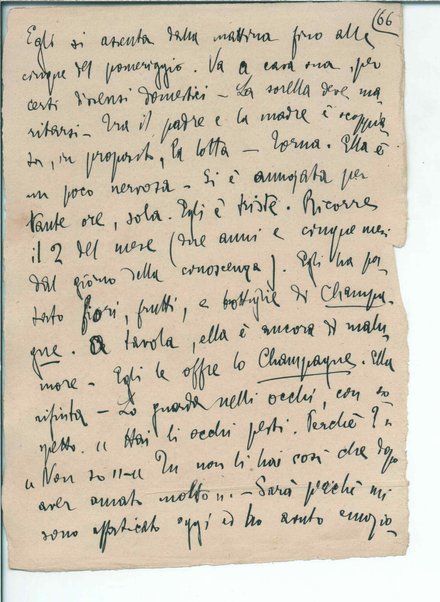 66
Egli si assenta dalla mattina fino alle
cinque del pomeriggio. Va a casa sua, per
certi dissensi domestici – La sorella deve ma-
ritarsi – Tra il padre e la madre è scoppia-
ta, in proposito, la lotta – Torna. Ella è
un poco nervosa – Si è annojata per
tante ore, sola. Egli è triste. Ricorre
il 2 del mese (due anni e cinque mesi
dal giorno della conoscenza). Egli ha por-
tato fiori, frutti, e bottiglie di Champa-
gne. A tavola, ella è ancora di malu-
more – Egli le offre lo Champagne. Ella
rifiuta – Lo guarda negli occhi, con so-
spetto. « Hai li occhi pesti. Perchè? »
« Non so » – « Tu non li hai così che dopo
aver amato molto ». – Sarà perchè mi
sono affaticato oggi ed ho avuto emozio-